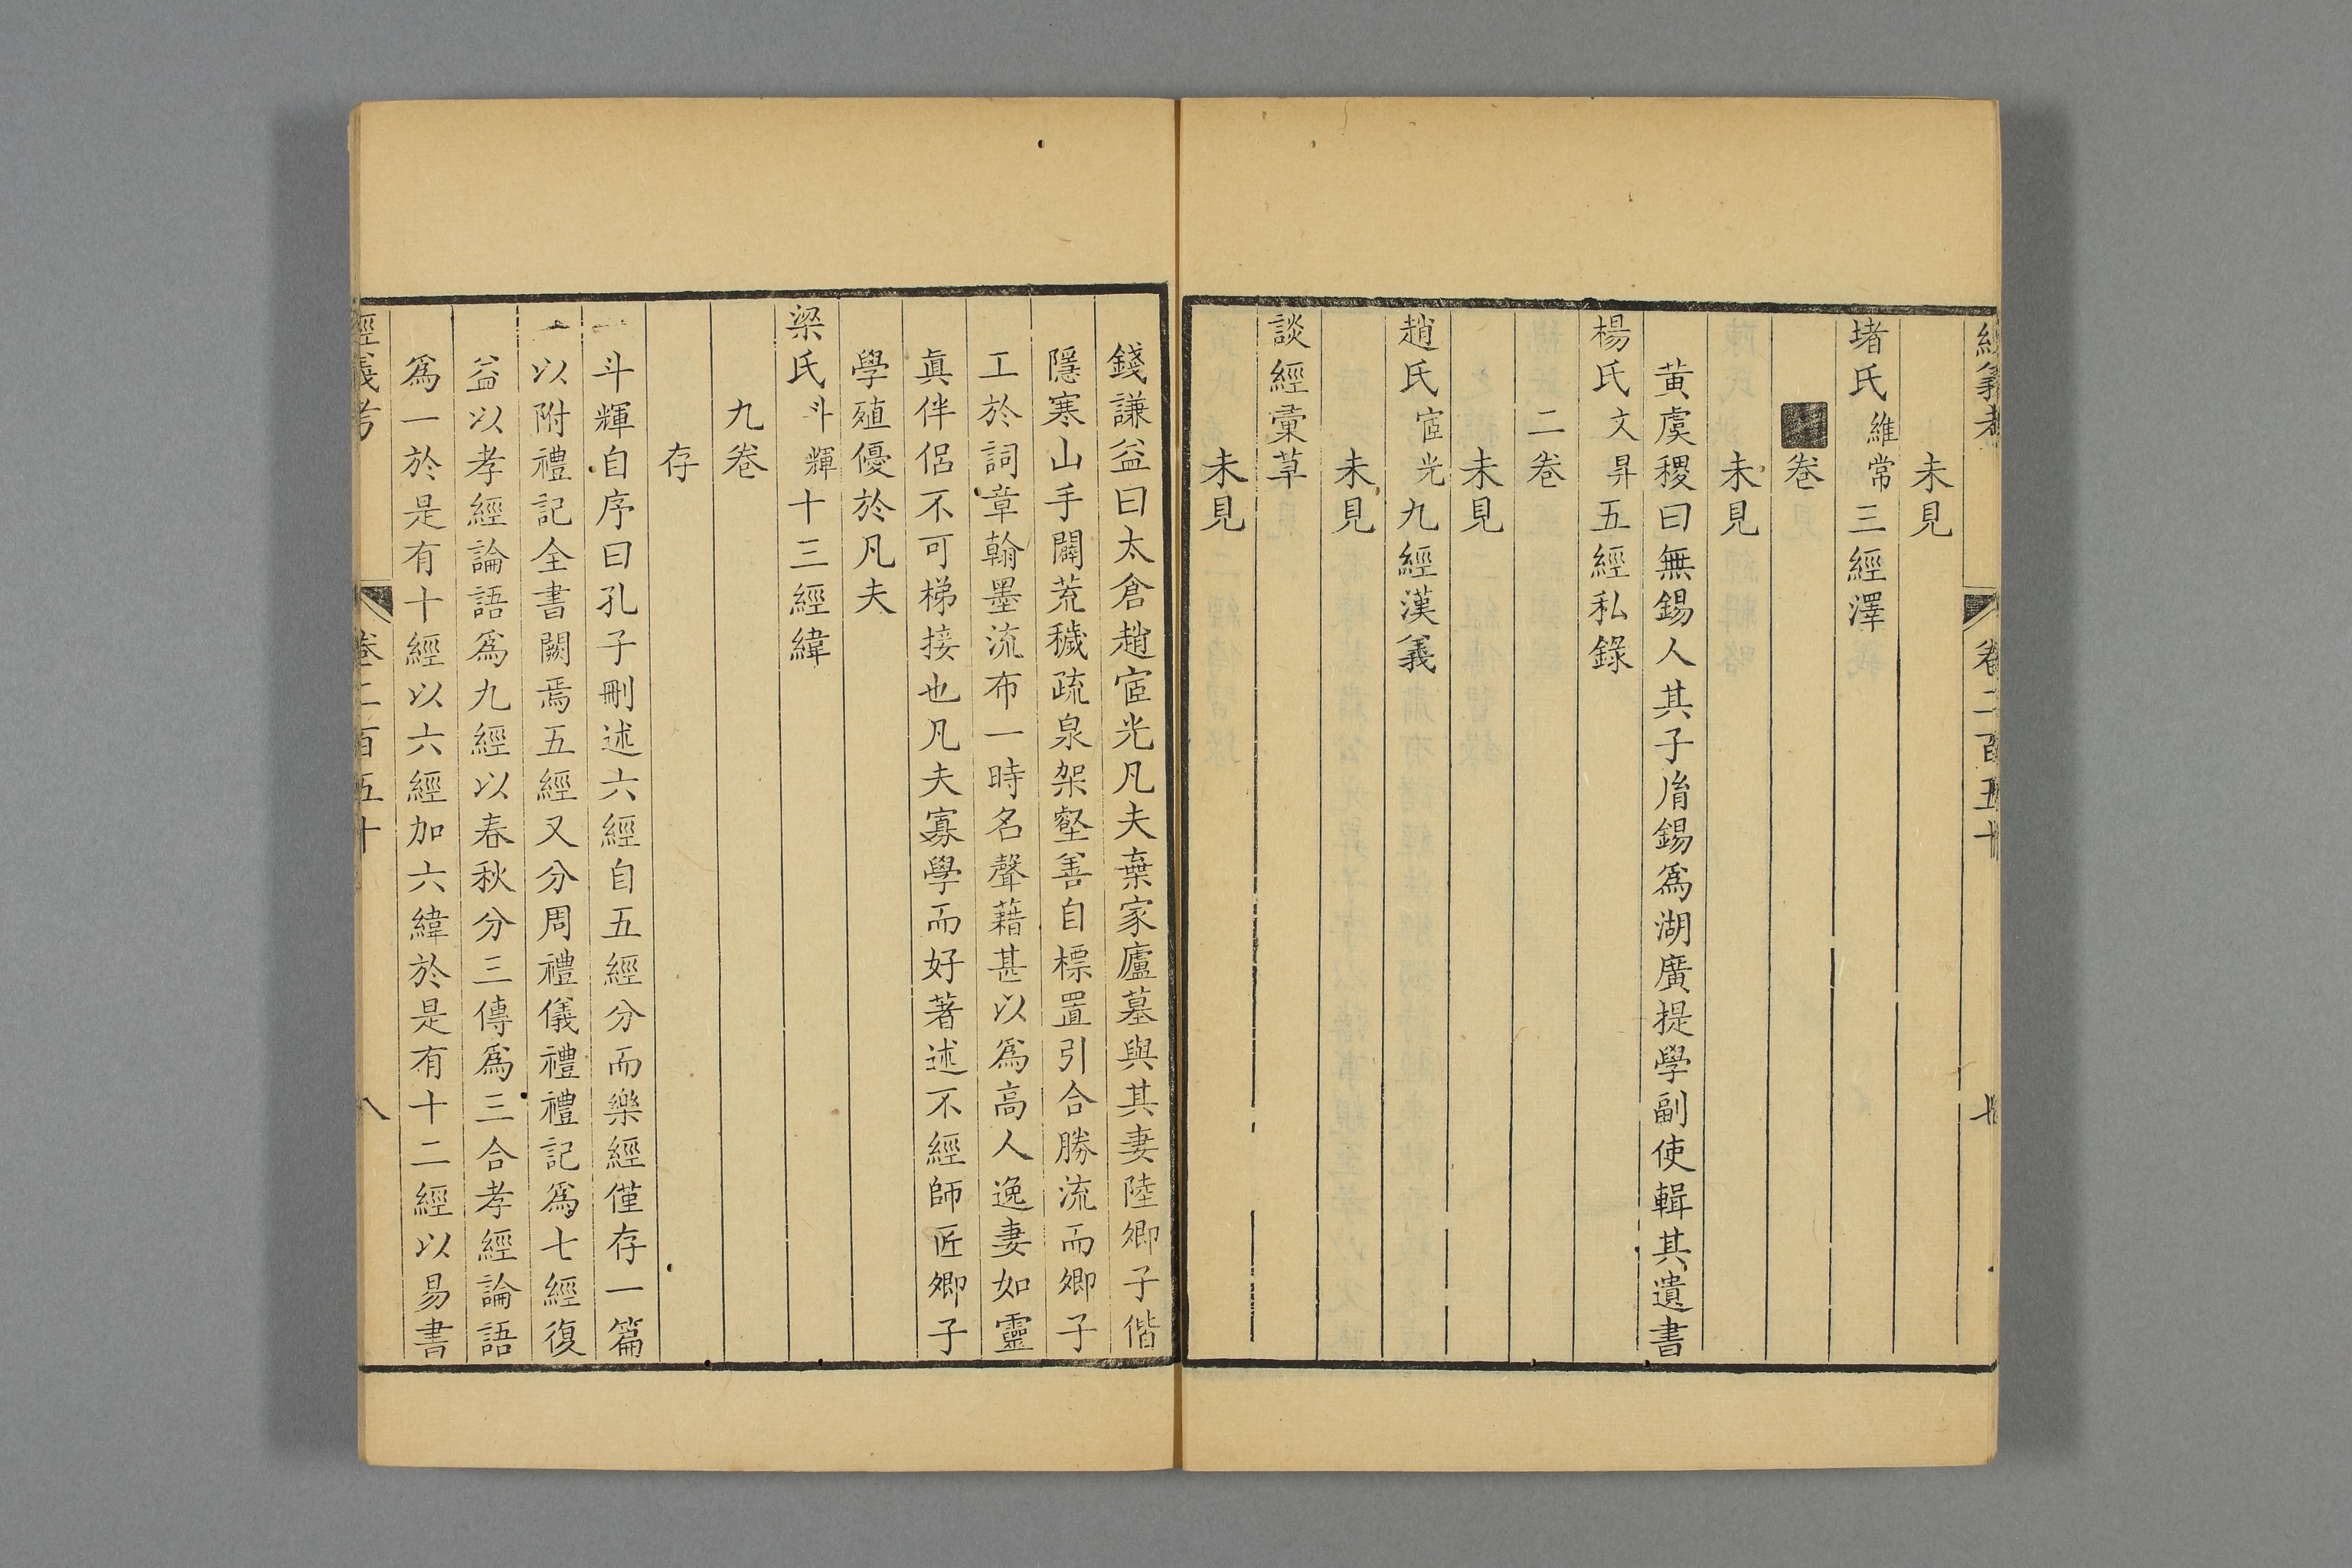 經義考 卷二百五十
未見
堵氏維常三經澤
卷
未見
黃虞稷曰無錫人其子㣧錫爲湖廣提學副使輯其遺書
楊氏文昇五經私錄
二卷
未見
趙氏宧光九經漢義
未見
談經彙草
未見
錢謙益曰太倉趙宧光凡夫棄家廬墓與其妻陸卿子偕
隱寒山手闢荒穢疏泉架壑善自標置引合勝流而卿子
工於詞章翰墨流布一時名聲藉甚以爲高人逸妻如靈
眞伴侶不可梯接也凡夫寡學而好著述不經師匠卿子
學殖優於凡夫
梁氏斗輝十三經緯
九卷
存
斗輝自序曰孔子刪述六經自五經分而樂經僅存一篇
以附禮記全書闕焉五經又分周禮儀禮禮記爲七經復
益以孝經論語爲九經以春秋分三傳爲三合孝經論語
爲一於是有十經以六經加六緯於是有十二經以易書
經義考 卷二百五十 八